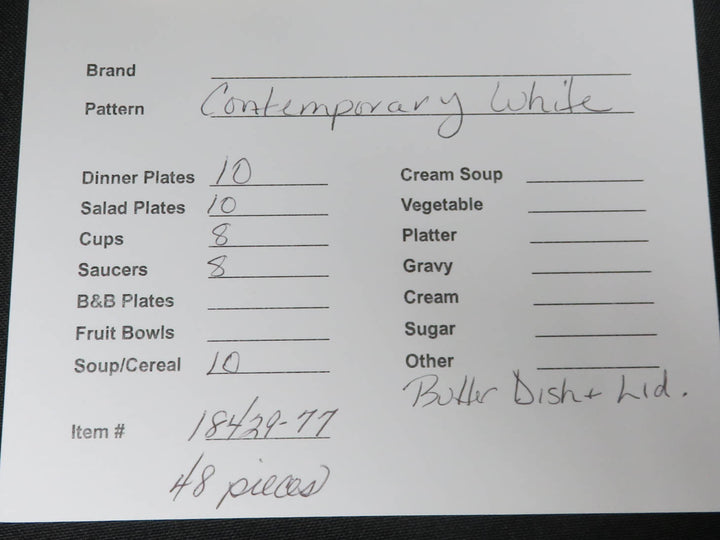 Brand
Pattern Contemporary White
Dinner Plates 10
Salad Plates 10
Cups 8
Saucers 8
B&B Plates
Fruit Bowls
Soup/Cereal 10
Cream Soup
Vegetable
Platter
Gravy
Cream
Sugar
Other
Butter Dish + Lid.
Item # 18429-77
48 pieces